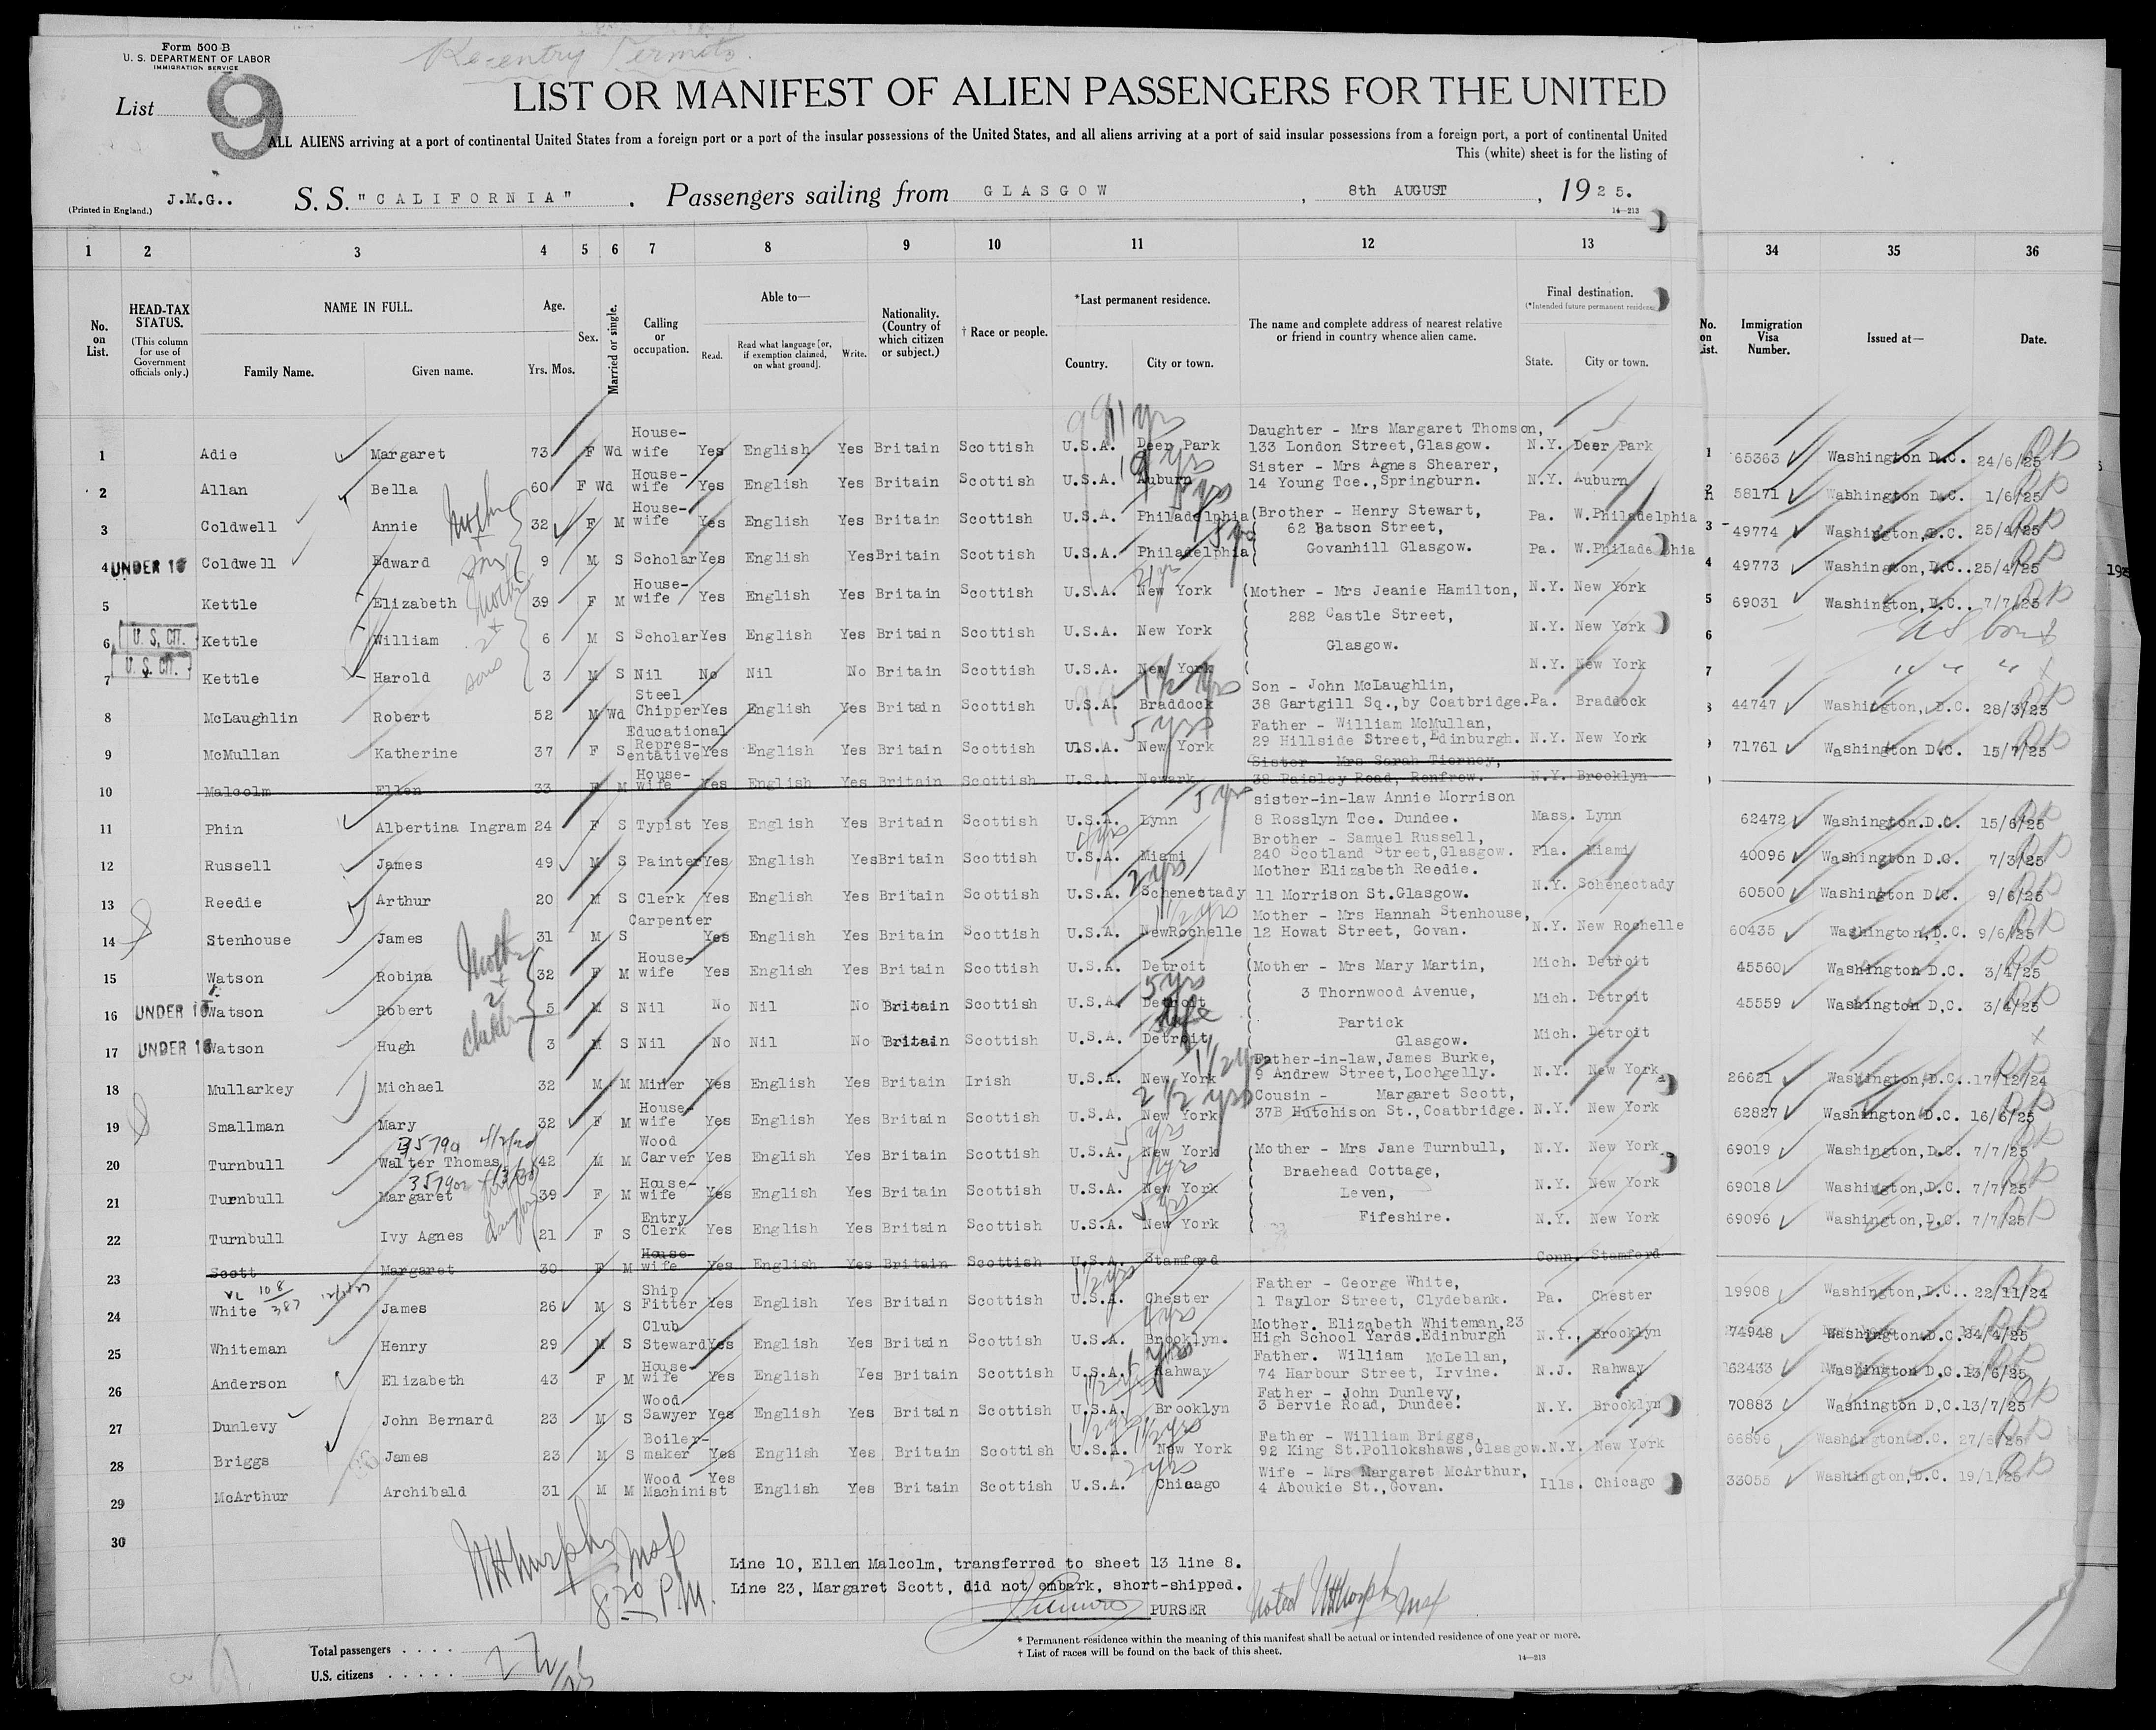 Form 500 B
U. S. DEPARTMENT OF LABOR
IMMIGRATION SERVICE
Re-entry Permits.
List 9
LIST OR MANIFEST OF ALIEN PASSENGERS FOR THE UNITED
ALL ALIENS arriving at a port of continental United States from a foreign port or a port of the insular possessions of the United States, and all aliens arriving at a port of said insular possessions from a foreign port, a port of continental United
This (white) sheet is for the listing of
(Printed in England.) J.M.G.. S. S. "CALIFORNIA" . Passengers sailing from GLASGOW , 8th AUGUST , 1925.
14—213
1 2 3 4 5 6 7 8 9 10 11 12 13 34 35 36
No. on List. HEAD-TAX STATUS. (This column for use of Government officials only.) NAME IN FULL. Family Name. Given name. Age. Yrs. Mos. Sex. Married or single. Calling or occupation. Able to— Read. Read what language [or, if exemption claimed, on what ground]. Write. Nationality. (Country of which citizen or subject.) † Race or people. *Last permanent residence. Country. City or town. The name and complete address of nearest relative or friend in country whence alien came. Final destination. (*Intended future permanent residence) State. City or town. No. on List. Immigration Visa Number. Issued at— Date.
1 Adie Margaret 73 F Wd House-wife Yes English Yes Britain Scottish U.S.A. Deer Park 11 yrs Daughter - Mrs Margaret Thomson, 133 London Street,Glasgow. N.Y. Deer Park 1 65363 Washington D.C. 24/6/25
2 Allan Bella 60 F Wd House-wife Yes English Yes Britain Scottish U.S.A. Auburn Sister - Mrs Agnes Shearer, 14 Young Tce.,Springburn. N.Y. Auburn 2 58171 Washington D.C. 1/6/25
3 Coldwell Annie Mother + son 32 F M House-wife Yes English Yes Britain Scottish U.S.A. Philadelphia (Brother - Henry Stewart, 62 Batson Street, Govanhill Glasgow. Pa. W.Philadelphia 3 49774 Washington,D.C. 25/4/25
4 UNDER 16 Coldwell Edward 9 M S Scholar Yes English Yes Britain Scottish U.S.A. Philadelphia Pa. W.Philadelphia 4 49773 Washington,D.C..25/4/25
5 Kettle Elizabeth Mother + 2 sons 39 F M House-wife Yes English Yes Britain Scottish U.S.A. New York (Mother - Mrs Jeanie Hamilton, 282 Castle Street, Glasgow. N.Y. New York 5 69031 Washington, D.C.. 7/7/25
6 U. S. CIT. Kettle William 6 M S Scholar Yes English Yes Britain Scottish U.S.A. New York N.Y. New York 6 US born
7 U. S. CIT. Kettle Harold 3 M S Nil No Nil No Britain Scottish U.S.A. New York N.Y. New York 7 " " "
8 McLaughlin Robert 52 M Wd Steel Chipper Yes English Yes Britain Scottish U.S.A. Braddock 1½ yrs Son - John McLaughlin, 38 Gartgill Sq.,by Coatbridge. Pa. Braddock 44747 Washington, D.C. 28/3/25
9 McMullan Katherine 37 F S Educational Repres-entative Yes English Yes Britain Scottish U.S.A. New York 5 yrs Father - William McMullan, 29 Hillside Street,Edinburgh. N.Y. New York 71761 Washington D.C. 15/7/25
10 Malcolm Ellen 33 F M House-wife Yes English Yes Britain Scottish U.S.A. Newark Sister - Mrs Sarah Tierney, 38 Paisley Road, Renfrew. N.Y. Brooklyn
11 Phin Albertina Ingram 24 F S Typist Yes English Yes Britain Scottish U.S.A. Lynn 5 yrs sister-in-law Annie Morrison 8 Rosslyn Tce. Dundee. Mass. Lynn 62472 Washington.D.C. 15/6/25
12 Russell James 49 M S Painter Yes English Yes Britain Scottish U.S.A. Miami Brother - Samuel Russell, 240 Scotland Street,Glasgow. Fla. Miami 40096 Washington D.C. 7/3/25
13 Reedie Arthur 20 M S Clerk Yes English Yes Britain Scottish U.S.A. Schenectady 2 yrs Mother Elizabeth Reedie. 11 Morrison St.Glasgow. N.Y. Schenectady 60500 Washington D.C. 9/6/25
14 Stenhouse James 31 M S Carpenter Yes English Yes Britain Scottish U.S.A. NewRochelle Mother - Mrs Hannah Stenhouse, 12 Howat Street, Govan. N.Y. New Rochelle 60435 Washington,D.C. 9/6/25
15 Watson Robina Mother + 2 children 32 F M House-wife Yes English Yes Britain Scottish U.S.A. Detroit (Mother - Mrs Mary Martin, 3 Thornwood Avenue, Partick Glasgow. Mich. Detroit 45560 Washington D.C. 3/4/25
16 UNDER 16 Watson Robert 5 M S Nil No Nil No Britain Scottish U.S.A. Detroit 5 yrs Mich. Detroit 45559 Washington D.C. 3/4/25
17 UNDER 16 Watson Hugh 3 M S Nil No Nil No Britain Scottish U.S.A. Detroit life Mich. Detroit
18 Mullarkey Michael 32 M M Miner Yes English Yes Britain Irish U.S.A. New York Father-in-law,James Burke, 9 Andrew Street,Lochgelly. N.Y. New York 26621 Washington,D.C..17/12/24
19 Smallman Mary 32 F M House-wife Yes English Yes Britain Scottish U.S.A. New York 2½ yrs Cousin - Margaret Scott, 37B Hutchison St.,Coatbridge. N.Y. New York 62827 Washington D.C. 16/6/25
20 Turnbull Walter Thomas 42 M M Wood Carver Yes English Yes Britain Scottish U.S.A. New York 5 yrs (Mother - Mrs Jane Turnbull, Braehead Cottage, Leven, Fifeshire. N.Y. New York 69019 Washington,D.C. 7/7/25
21 Turnbull Margaret 39 F M House-wife Yes English Yes Britain Scottish U.S.A. New York 5 yrs N.Y. New York 69018 Washington,D.C. 7/7/25
22 Turnbull Ivy Agnes daughter 21 F S Entry Clerk Yes English Yes Britain Scottish U.S.A. New York 5 yrs N.Y. New York 69096 Washington,D.C. 7/7/25
23 Scott Margaret 30 F M House-wife Yes English Yes Britain Scottish U.S.A. Stamford Conn. Stamford
24 White James 26 M S Ship Fitter Yes English Yes Britain Scottish U.S.A. Chester 1½ yrs Father - George White, 1 Taylor Street, Clydebank. Pa. Chester 19908 Washington,D.C.. 22/11/24
25 Whiteman Henry 29 M S Club Steward Yes English Yes Britain Scottish U.S.A. Brooklyn. Mother. Elizabeth Whiteman,23 High School Yards.Edinburgh N.Y. Brooklyn 74948 Washington D.C. 24/4/25
26 Anderson Elizabeth 43 F M House-wife Yes English Yes Britain Scottish U.S.A. Rahway Father. William McLellan, 74 Harbour Street, Irvine. N.J. Rahway 62433 Washington D.C.13/6/25
27 Dunlevy John Bernard 23 M S Wood Sawyer Yes English Yes Britain Scottish U.S.A. Brooklyn 1½ yrs Father - John Dunlevy, 3 Bervie Road, Dundee. N.Y. Brooklyn 70883 Washington D.C.13/7/25
28 Briggs James 23 M S Boiler-maker Yes English Yes Britain Scottish U.S.A. New York 1½ yrs Father - William Briggs, 92 King St.Pollokshaws,Glasgow. N.Y. New York 66896 Washington D.C.
29 McArthur Archibald 31 M M Wood Machinist Yes English Yes Britain Scottish U.S.A. Chicago 2 yrs Wife - Mrs Margaret McArthur, 4 Aboukie St.,Govan. Ills. Chicago 33055 Washington,D.C. 19/1/25
30
Line 10, Ellen Malcolm, transferred to sheet 13 line 8.
Line 23, Margaret Scott, did not embark, short-shipped.
PURSER
WHMurphy Insp
8 20 P.M.
Noted WHMurphy Insp
* Permanent residence within the meaning of this manifest shall be actual or intended residence of one year or more.
† List of races will be found on the back of this sheet.
14—213
Total passengers . . . . 27
U.S. citizens . . . . .